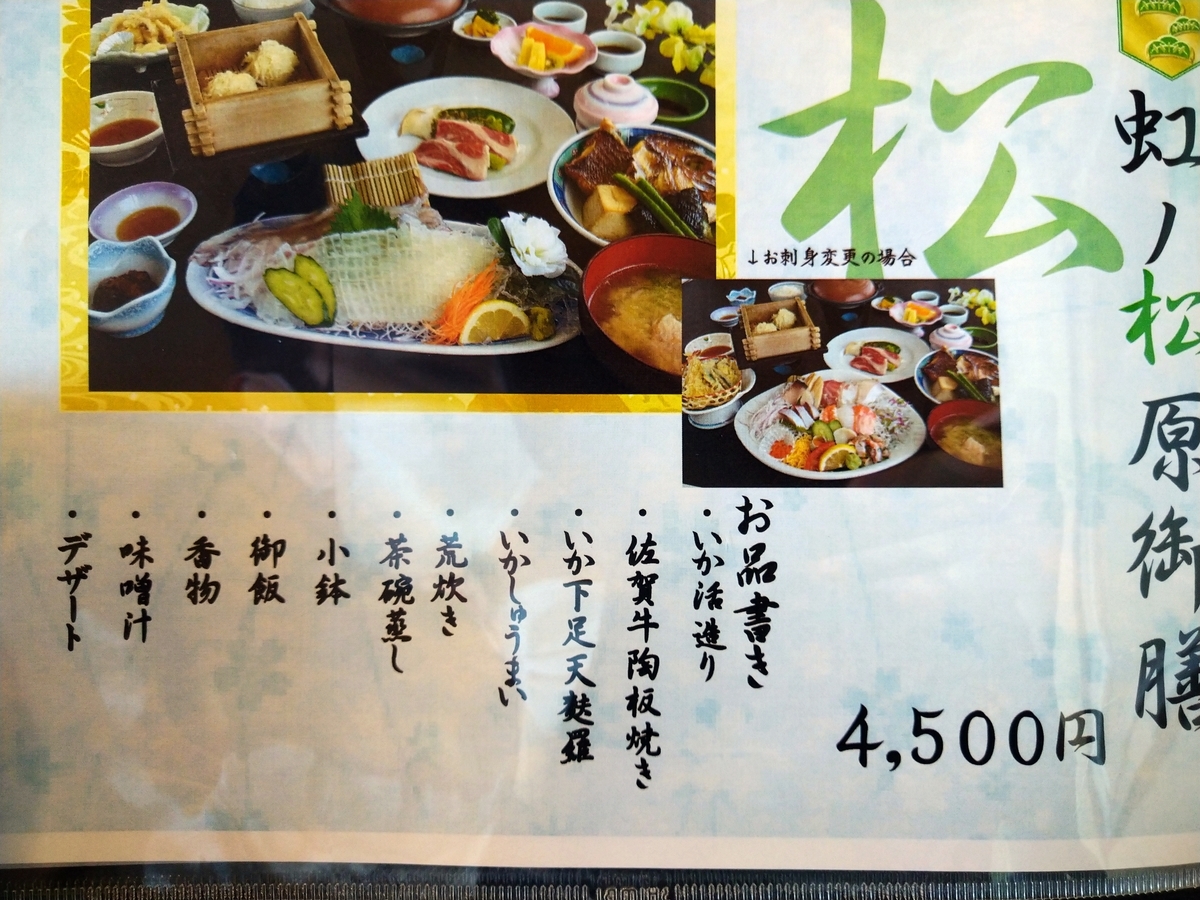 虹ノ松原御膳
松
↓お刺身変更の場合
4,500円
お品書き
・いか活造り
・佐賀牛陶板焼き
・いか下足天麩羅
・いかしゅうまい
・荒炊き
・茶碗蒸し
・小鉢
・御飯
・香物
・味噌汁
・デザート